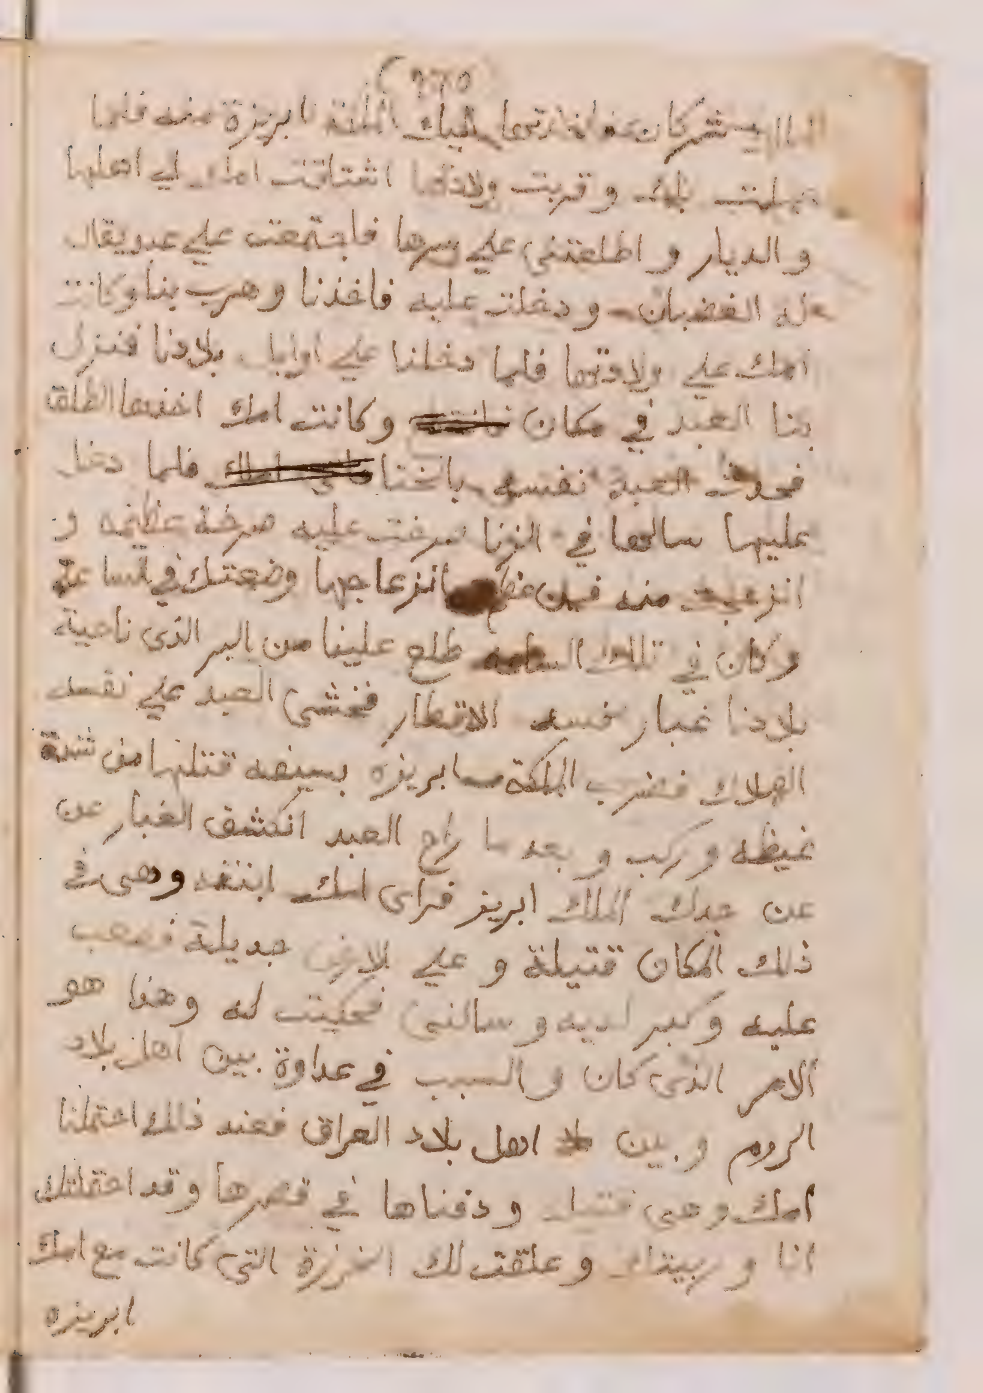 الملكة ابريزة منه فلما
حملت بك وقربت ولادتها اشتاقت امك الي اهلها
والديار و اطلعتني علي سرها فاجتمعت علي عبد يقال
له الغضبان و دخلت عليه فاخذنا وهرب بنا وكانت
امك علي ولادتها فلما دخلنا علي اوايل بلادنا فنزل
بنا العبد في مكان وكانت امك اخذها الطلق
العبد نفسه بالخنا فلما دخل
عليها سالها في الزنا صرخت عليه صرخة عظيمه و
انزعجت منه فمن عظم انزعاجها وضعتك في الساعة
وكان في تلك الساعه طلع علينا من البر الذي ناحية
بلادنا غبار الاقطار فخشي العبد علي نفسه
الهلاك فضرب الملكة ابريزه بسيفه قتلها من شدة
غيظه وركب وبعد ما راح العبد انكشف الغبار عن
عن جدك الملك فراي امك ابنته وهي في
ذلك المكان قتيلة و علي الارض جديلة فصعب
عليه وكبر لديه و سالني فحكيت له وهذا هو
الامر الذي كان و السبب في عداوة بين اهل بلاد
الروم وبين اهل بلاد العراق فعند ذلك احتملنا
امك وهي قتيله و دفناها في قصرها وقد احتملتك
انا و ربيتك و علقت لك الخرزة التي كانت مع امك
ابريزه